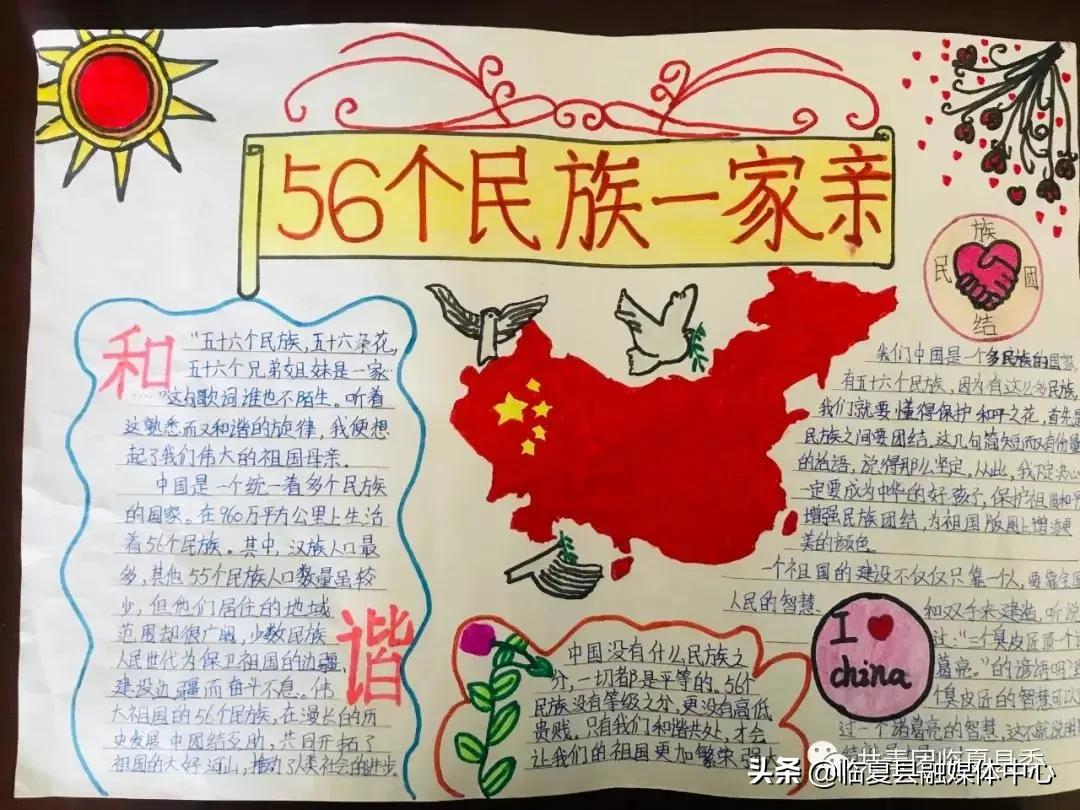 56个民族一家亲
族
民
团
结
和
"五十六个民族,五十六朵花,
五十六个兄弟姐妹是一家
……"这句歌词谁也不陌生。听着
这熟悉而又和谐的旋律,我便想
起了我们伟大的祖国母亲。
中国是一个统一着多个民族
的国家。在960万平方公里上生活
着56个民族。其中,汉族人口最
多,其他55个民族人口数量虽较
少,但他们居住的地域
范围却很广阔,少数民族
人民世代为保卫祖国的边疆、
建设边疆而奋斗不息。伟
大祖国的56个民族,在漫长的历
史发展中团结互助,共同开拓了
祖国的大好河山,推动了人类社会的进步。
谐
中国没有什么民族之
分,一切都是平等的。56个
民族没有等级之分,更没有高低
贵贱。只有我们和谐共处,才会
让我们的祖国更加繁荣强大
我们中国是一个多民族的国家,
有五十六个民族,因为有这么多民族,
我们就要懂得保护和平之花,首先是
民族之间要团结。这几句简短而又有份量
的话语,说得那么坚定。从此,我下定决心
一定要成为中华的好孩子,保护祖国和平
增强民族团结,为祖国版图上增添更
美的颜色。
一个祖国的建设不仅仅只靠一个人,要靠全国
人民的智慧
和双手来建造,听说
过:"三个臭皮匠顶一个诸
葛亮。"的谚语吗?
臭皮匠的智慧可以
过一个诸葛亮的智慧,这不就说明
I
china
共青团临夏县委
头条 @临夏县融媒体中心